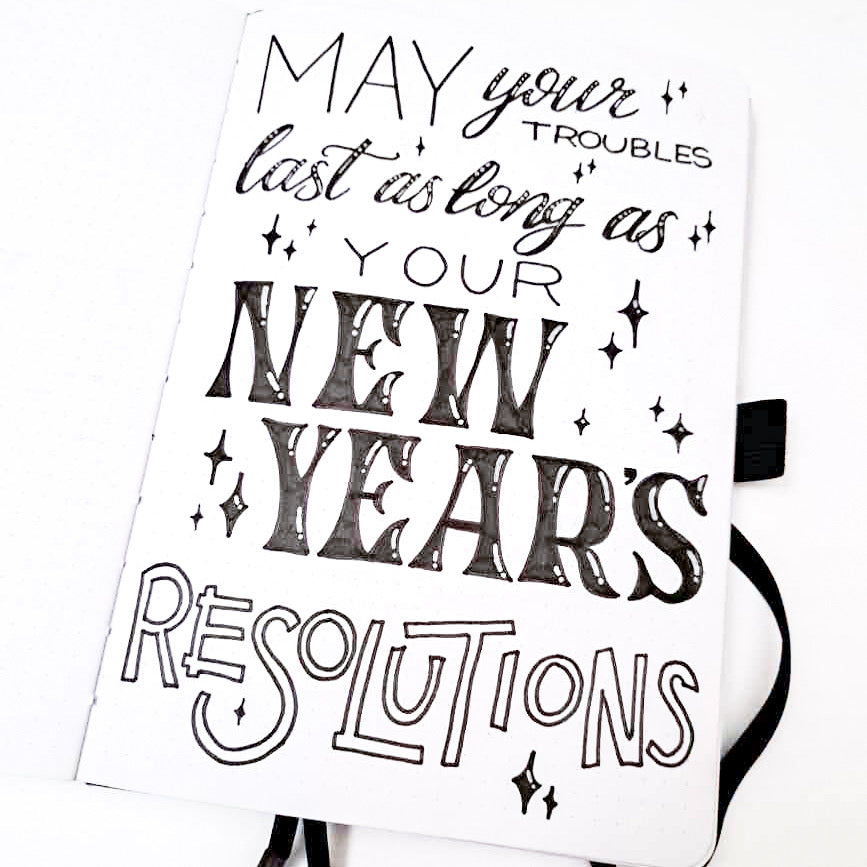 MAY your
TROUBLES
last as long as
YOUR
NEW
YEAR'S
RESOLUTIONS